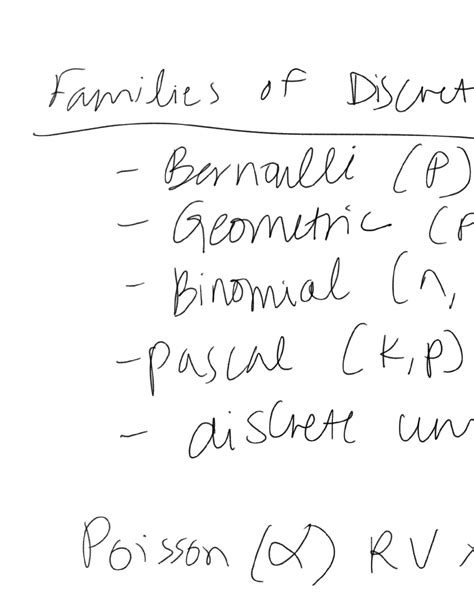 Families of Discret
- Bernoulli (P)
- Geometric (P
- Binomial (n,
- Pascal (K,P)
- discrete un
Poisson (α) RV x